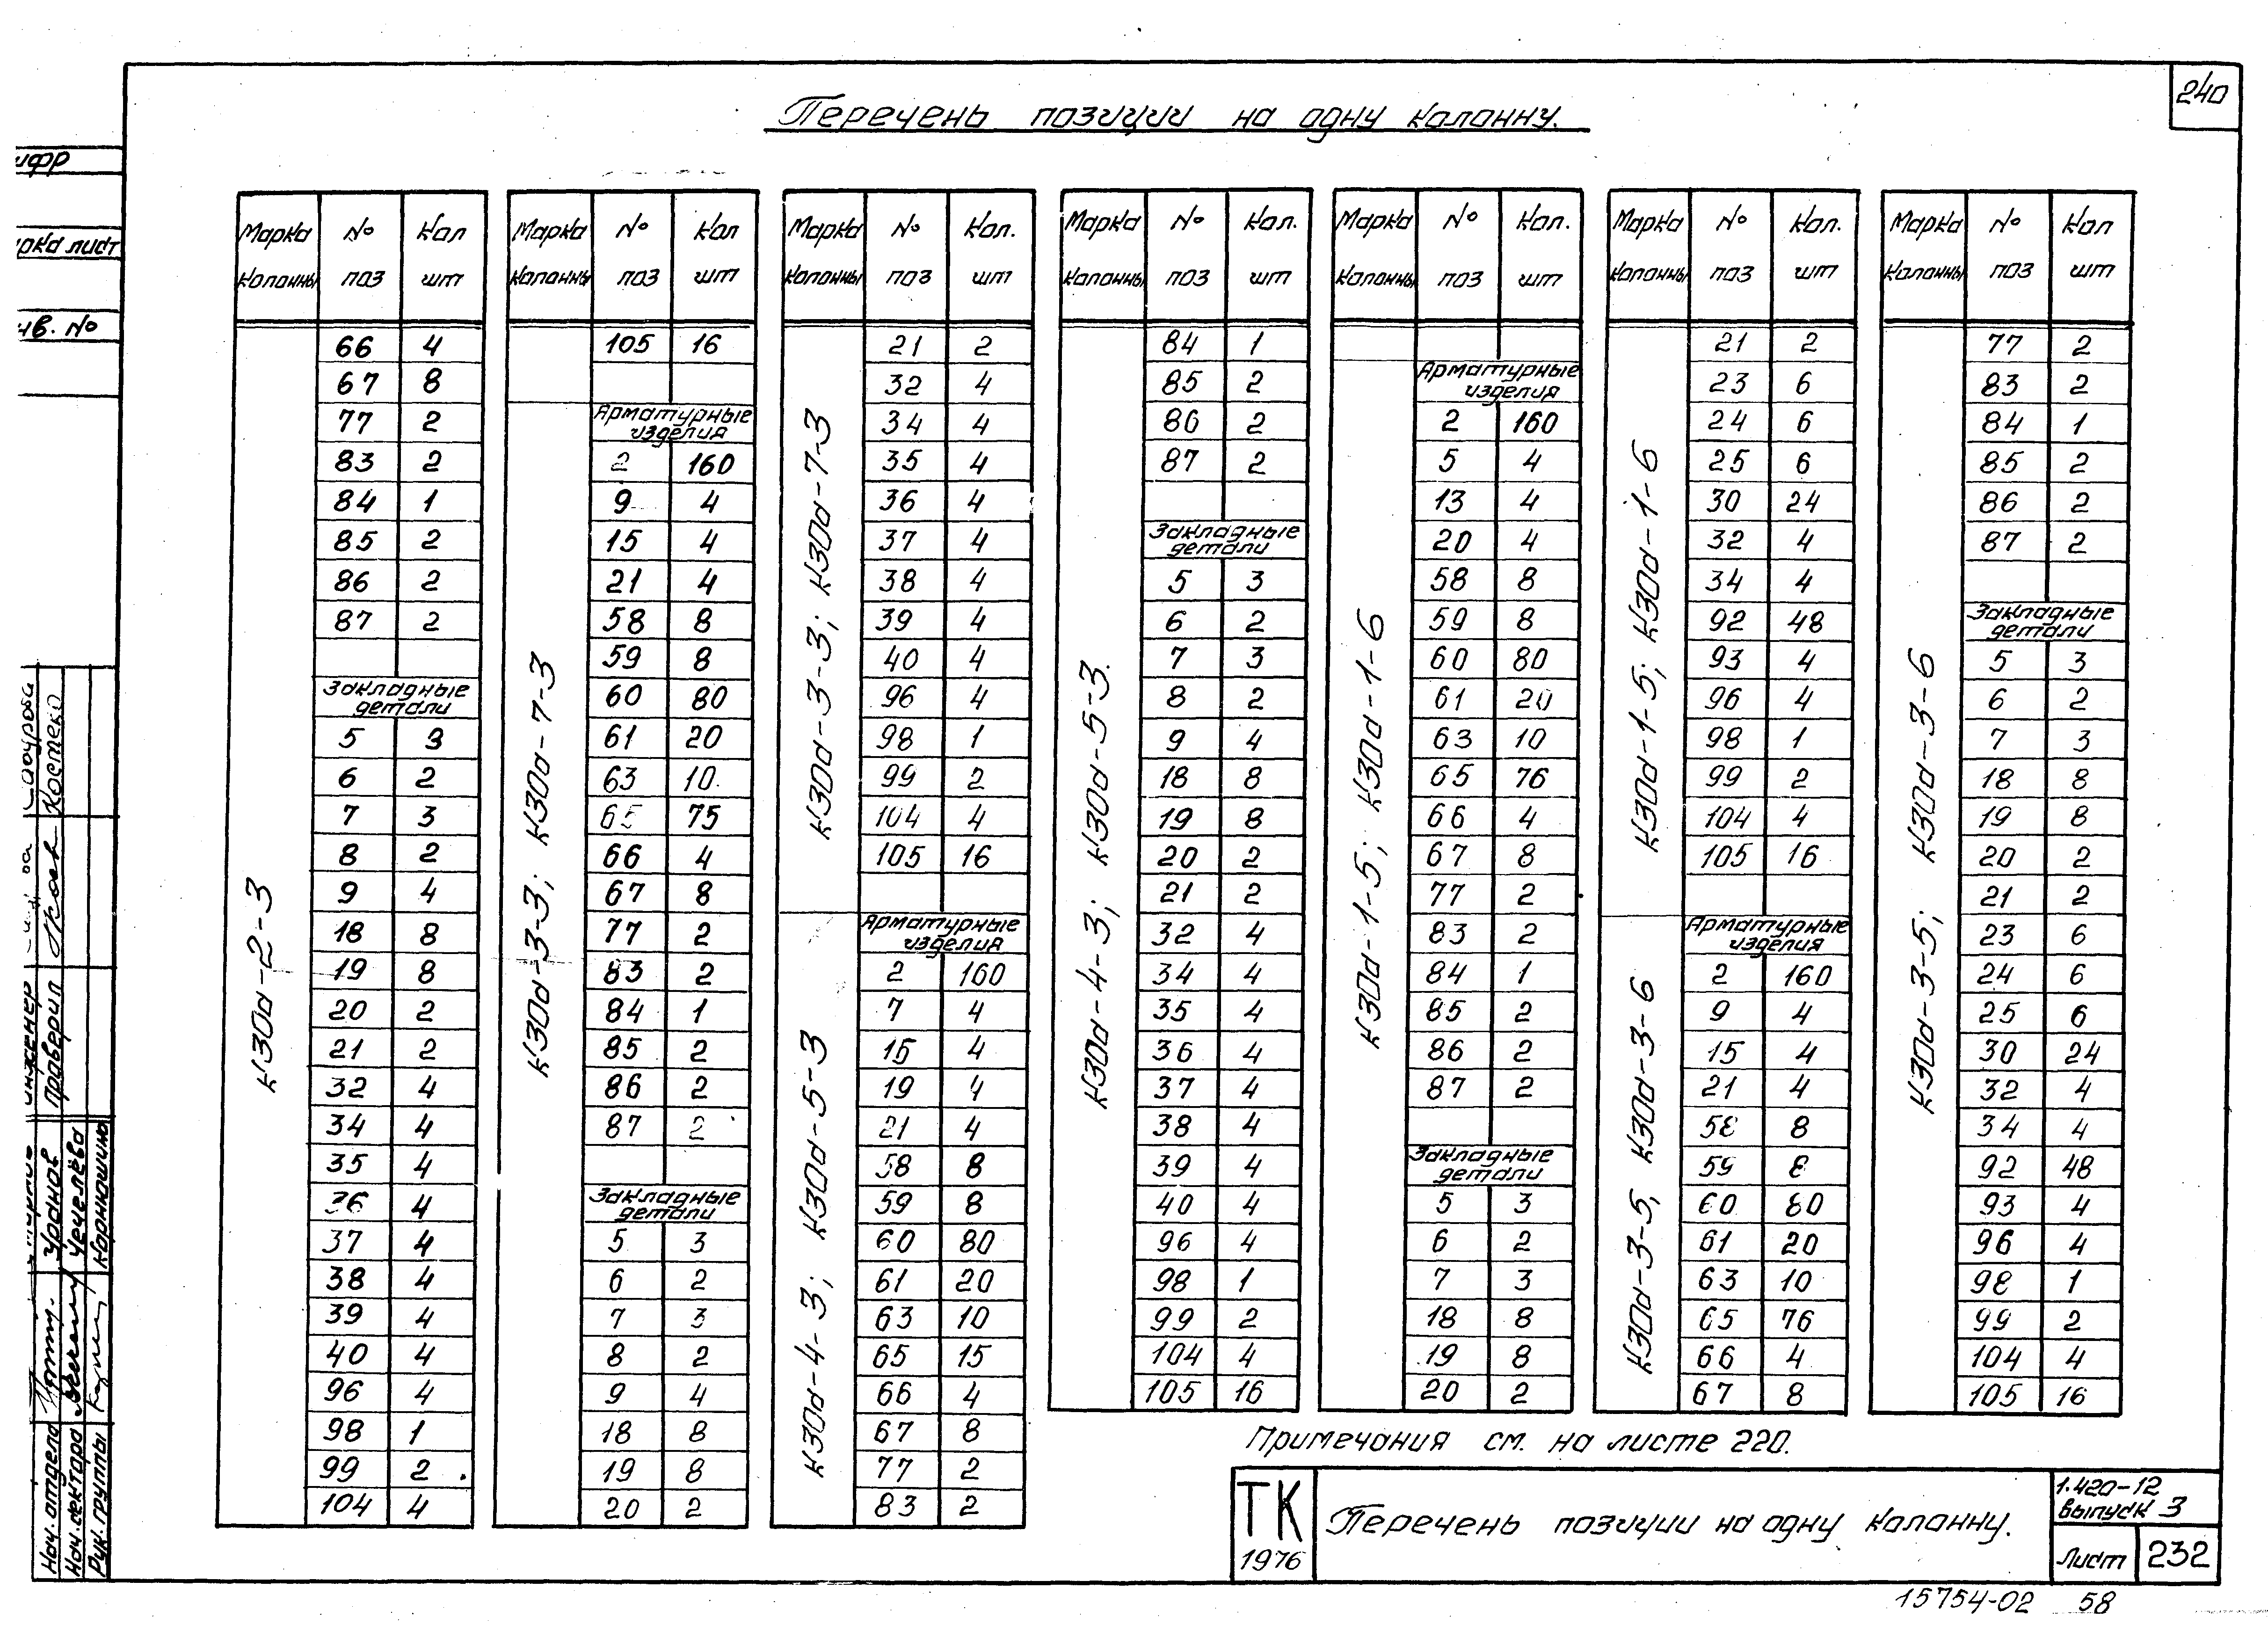 240
Перечень позиции на одну колонну.
Марка колонны № поз Кол шт
К30д-2-3
66 4
67 8
77 2
83 2
84 1
85 2
86 2
87 2
Закладные детали
5 3
6 2
7 3
8 2
9 4
18 8
19 8
20 2
21 2
32 4
34 4
35 4
36 4
37 4
38 4
39 4
40 4
96 4
98 1
99 2
104 4
Марка колонны № поз Кол шт
105 16
К30д-3-3; К30д-7-3
Арматурные изделия
2 160
9 4
15 4
21 4
58 8
59 8
60 80
61 20
63 10
65 75
66 4
67 8
77 2
83 2
84 1
85 2
86 2
87 2
Закладные детали
5 3
6 2
7 3
8 2
9 4
18 8
19 8
20 2
Марка колонны № поз Кол. шт
К30д-3-3; К30д-7-3
21 2
32 4
34 4
35 4
36 4
37 4
38 4
39 4
40 4
96 4
98 1
99 2
104 4
105 16
К30д-4-3; К30д-5-3
Арматурные изделия
2 160
7 4
15 4
19 4
21 4
58 8
59 8
60 80
61 20
63 10
65 15
66 4
67 8
77 2
83 2
Марка колонны № поз Кол. шт
К30д-4-3; К30д-5-3.
84 1
85 2
86 2
87 2
Закладные детали
5 3
6 2
7 3
8 2
9 4
18 8
19 8
20 2
21 2
32 4
34 4
35 4
36 4
37 4
38 4
39 4
40 4
96 4
98 1
99 2
104 4
105 16
Марка колонны № поз Кол. шт
К30д-1-5; К30д-1-6
Арматурные изделия
2 160
5 4
13 4
20 4
58 8
59 8
60 80
61 20
63 10
65 76
66 4
67 8
77 2
83 2
84 1
85 2
86 2
87 2
Закладные детали
5 3
6 2
7 3
18 8
19 8
20 2
Марка колонны № поз Кол. шт
К30д-1-5; К30д-1-6
21 2
23 6
24 6
25 6
30 24
32 4
34 4
92 48
93 4
96 4
98 1
99 2
104 4
105 16
К30д-3-5, К30д-3-6
Арматурные изделия
2 160
9 4
15 4
21 4
58 8
59 8
60 80
61 20
63 10
65 76
66 4
67 8
Марка колонны № поз Кол шт
К30д-3-5; К30д-3-6
77 2
83 2
84 1
85 2
86 2
87 2
Закладные детали
5 3
6 2
7 3
18 8
19 8
20 2
21 2
23 6
24 6
25 6
30 24
32 4
34 4
92 48
93 4
96 4
98 1
99 2
104 4
105 16
Примечания см. на листе 220.
ТК
1976
Перечень позиции на одну колонну.
1.420-12
выпуск 3
Лист 232
15754-02 58
ифр
рка лист
нв. №
инженер
Проверил Костеко
Нач. отдела Уранов
Нач. сектора Чечелёва
Рук. группы Корнюшина